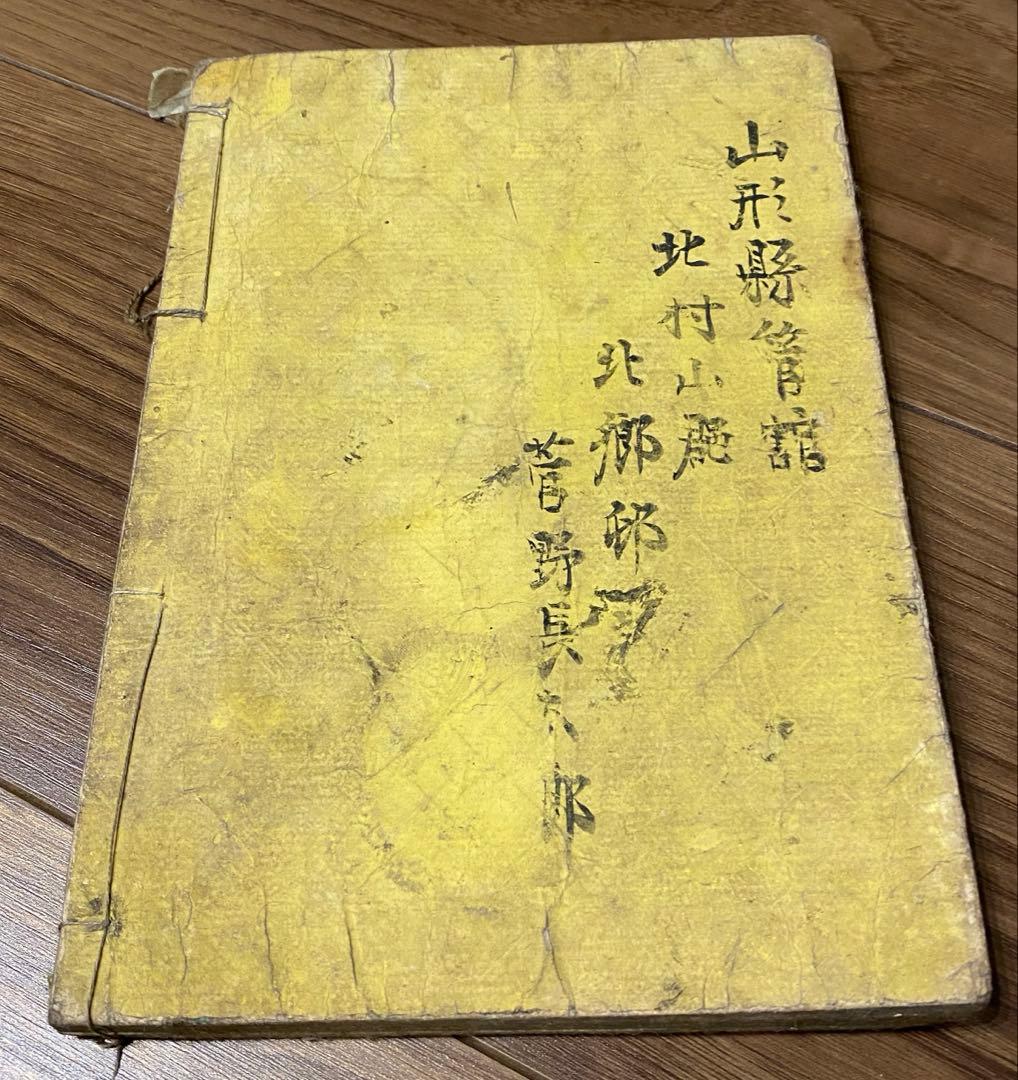 山形縣管舘
北村山郡
北郷邨
菅野長太郎